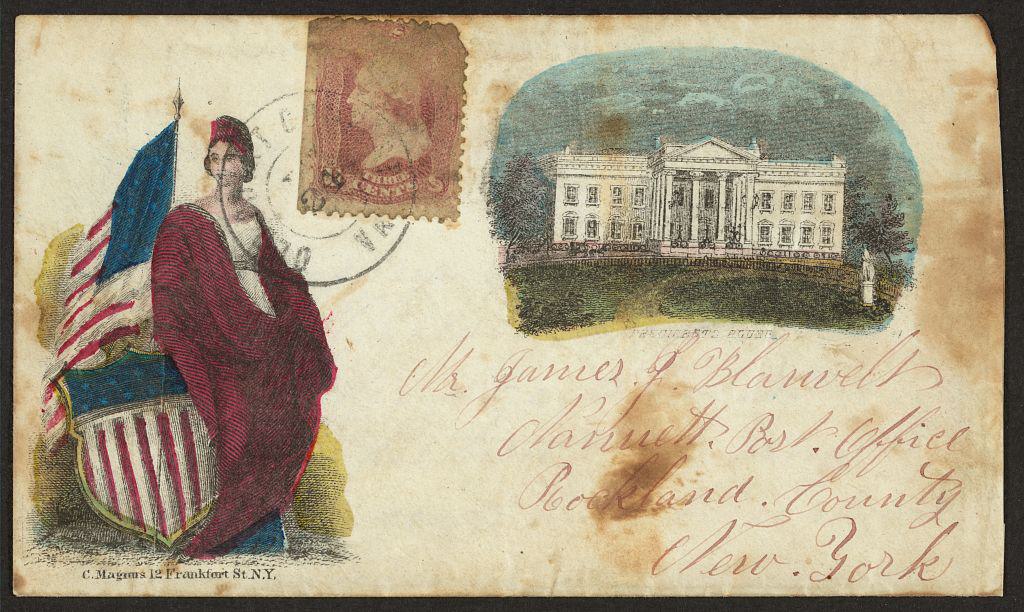 THREE
CENTS
PRESIDENT'S HOUSE
Mr. James. J. Blauvelt
Nannuett. Post. Office
Rockland. County
New. York
C. Magnus 12 Frankfort St. N.Y.